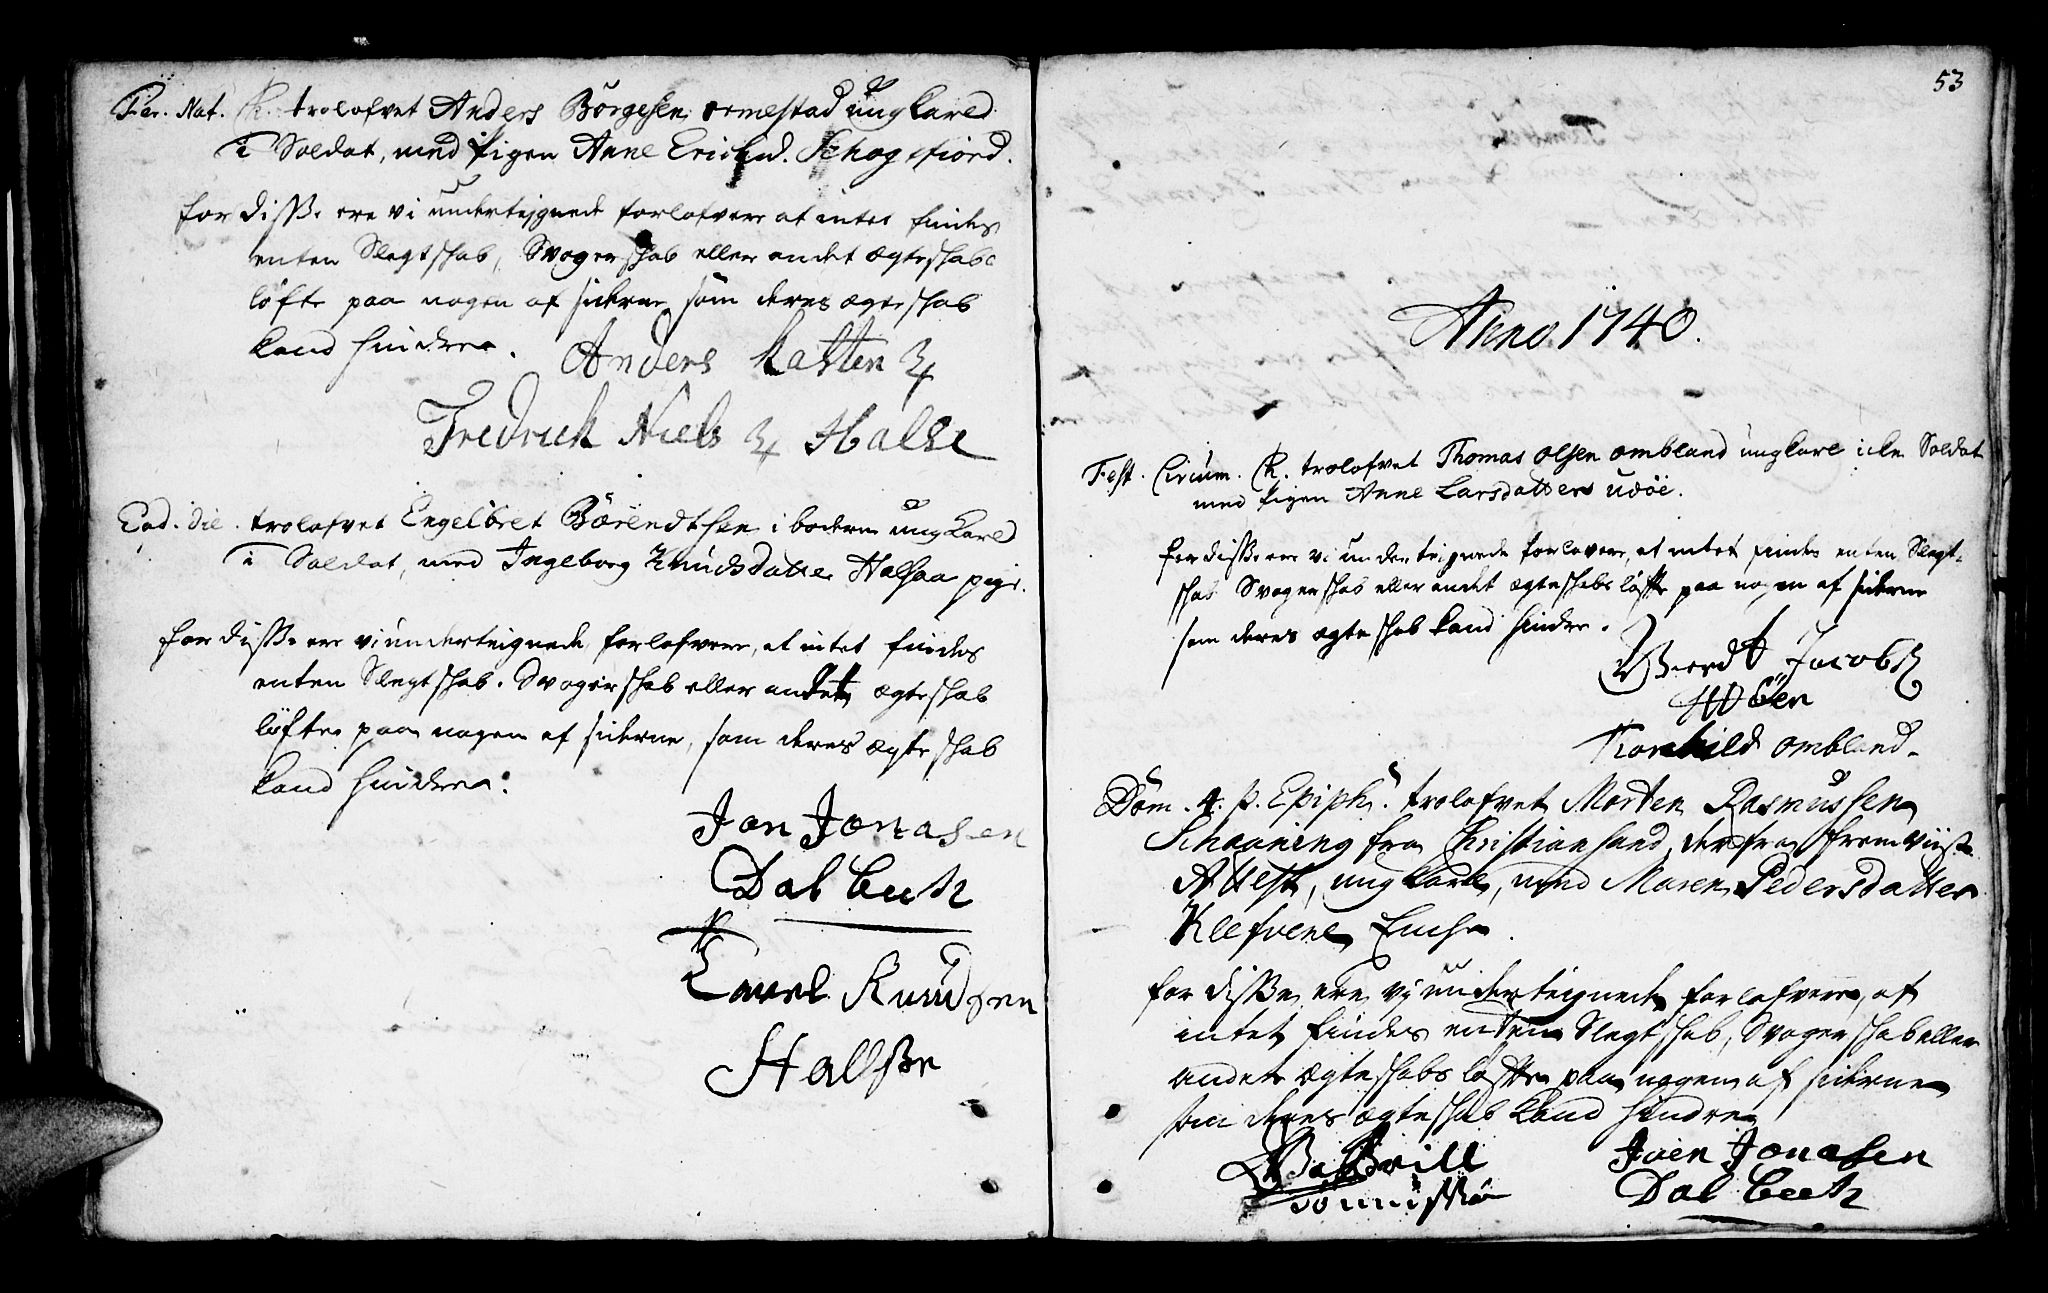 Fer. Nat. Χ. trolofvet Anders Börgesen ormestad ungkarl
i Soldat, med pigen Anne Erichsd. Schogsfiord.
for disse ere vi undertegnede forlofvere at intet findes
enten Slegtschab, Svogerschab eller andet ægteschabs
løfte paa nogen af siderne som deres ægteschab
kand hindre.
Anders
Fredrick Niels Halse
Eod. die. trolofvet Engelbret Börendtsen i boderne ungkarl
i Soldat, med Ingeborg Knudsdatter Halsaa pige.
for disse ere vi underteignede forlofvere, at intet findes
enten Slegtschab, Svogerschab eller andet ægteschab
løfte paa nogen af siderne, som deres ægteschab
kand hindre.
Jon Jonasen
Dal
Knudsen
Halsse
53
Anno 1740.
Fest. Circum. Χ. trolofvet Thomas Olsen ombland ungkarl icke Soldat
med pigen Anne Larsdatter udöe.
for disse ere vi underteignede forlovere, at intet findes enten Slegt-
schab Svogerschab eller andet ægteschabs løfte paa nogen af siderne
som deres ægteschab kand hindre.
Jacobs
Torchild ombland.
Dom. 4. p. Epiph. trolofvet Morten Rasmussen
Schaaning fra Christiansand, derfra fremviist
Attest, ungkarl, med Maren Pedersdatter
Klefvene Enche.
for disse ere vi underteignede forlofvere, at
intet findes enten Slegtschab, Svogerschab eller
andet ægteschabs løfte paa nogen af siderne
som deres ægteschab kand hindre
Jven Jonasen
Dal